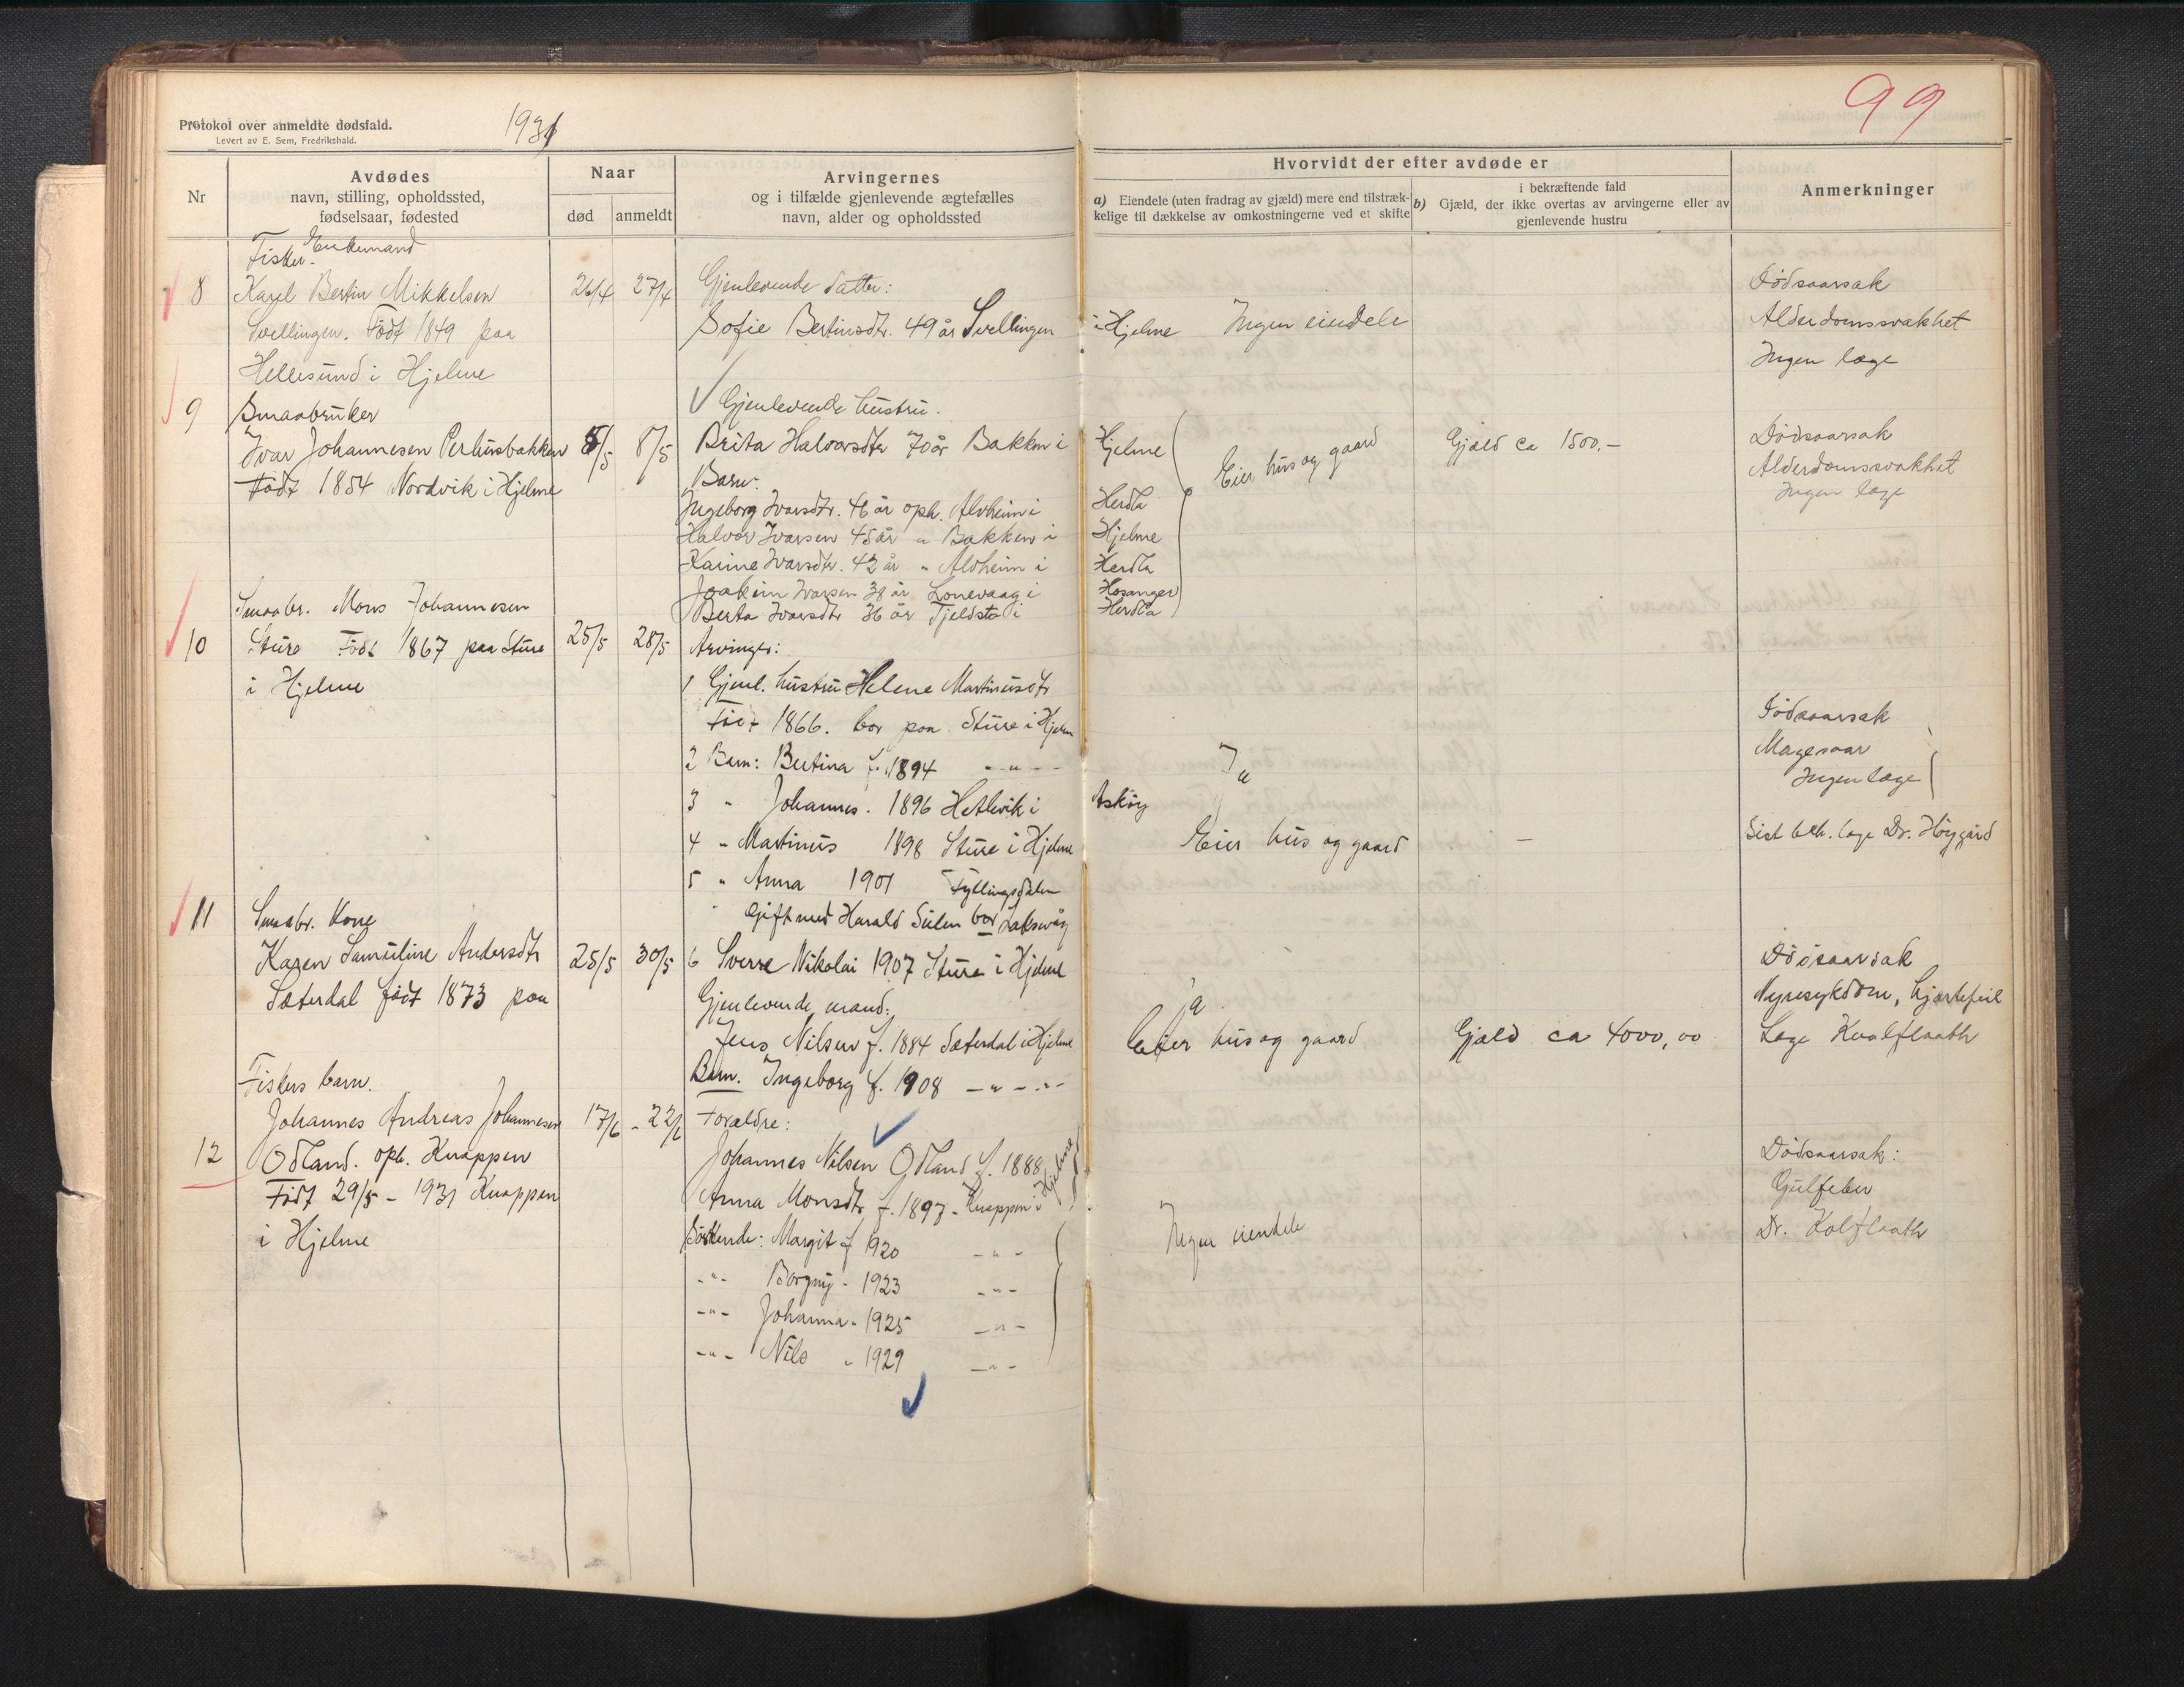 Protokol over anmeldte dødsfald.
Levert av E. Sem, Fredrikshald.
1931
99
Nr
Avdødes
navn, stilling, opholdssted,
fødselsaar, fødested
Naar
død
anmeldt
Arvingernes
og i tilfælde gjenlevende ægtefælles
navn, alder og opholdssted
Hvorvidt der efter avdøde er
a) Eiendele (uten fradrag av gjæld) mere end tilstræk-
kelige til dækkelse av omkostningerne ved et skifte
i bekræftende fald
b) Gjæld, der ikke overtas av arvingerne eller av
gjenlevende hustru
Anmerkninger
Fisker. Enkemand
8 Karel Bertin Mikkelsen 26/4 27/4 Gjenlevende datter: Dødsaarsak
Svellingen. Født 1849 paa Sofie Bertinsdtr. 49 år Svellingen i Hjelme Ingen eiendele Alderdomssvakhet
Hellesund i Hjelme Ingen læge
9 Smaabruker Gjenlevende hustru.
Ivar Johannesen Perhusbakken 5/5 8/5 Brita Halvorsdtr 70 år Bakken i Hjelme Eier hus og gaard Gjæld ca 1500.- Dødsaarsak
Født 1854 Nordvik i Hjelme Barn: Alderdomssvakhet
Ingen læge
Ingeborg Ivarsdtr. 46 år oph. Alvheim i Herdla
Halvor Ivarsen 45 år " Bakken i Hjelme
Karine Ivarsdtr. 42 år " Alvheim i Herdla
Joakim Ivarsen 38 år Lonevaag i Hosanger
Berta Ivarsdtr 36 år Tjeldstø i Herdla
Smaabr. Mons Johannesen
10 Sture Født 1867 paa Sture 25/5 28/5 Arvinger:
i Hjelme 1 Gjenl. hustru Helene Martinusdtr
Født 1866. bor paa Sture i Hjelm Dødsaarsak
2 Barn: Bertina f. 1894 - " - Ja Magesaar
Ingen læge
3 " Johannes. 1896 Hetlevik i Askøy
4 " Martinus 1898 Sture i Hjelme Eier hus og gaard - Sist beh. læge Dr. Høygård
5 " Anna 1901 Fyllingsdalen
Gift med Harald Sulen bor Laksevåg
11 Smaabr. Kone
Karen Samuline Andersdtr 25/5 30/5 6 Sverre Nikolai 1907 Sture i Hjelme Dødsaarsak
Sæterdal født 1873 paa Gjenlevende mand: ja. Nyresykdom, hjertefeil
Jens Nilsen f. 1884 Sæterdal i Hjelme Eier hus og gaard Gjæld ca 4000,00 Læge Kvalflaath
Barn. Ingeborg f. 1908 - " - " -
Fiskers barn.
Johannes Andreas Johannesen 17/6 - 22/6 Forældre:
12 Odland. oph. Knappen Johannes Nilsen Odland f. 1888 Dødsaarsak:
Født 29/5 - 1931 Knappen Anna Monsdtr f. 1897 - Knappen i Hjelme Gulfeber
i Hjelme Søskende: Margit f 1920 - " - Ingen eiendele Dr. Kolflaath
- " - Borgny - 1923 - " -
- " - Johanna - 1925 - " -
- " - Nils " 1929 - " -